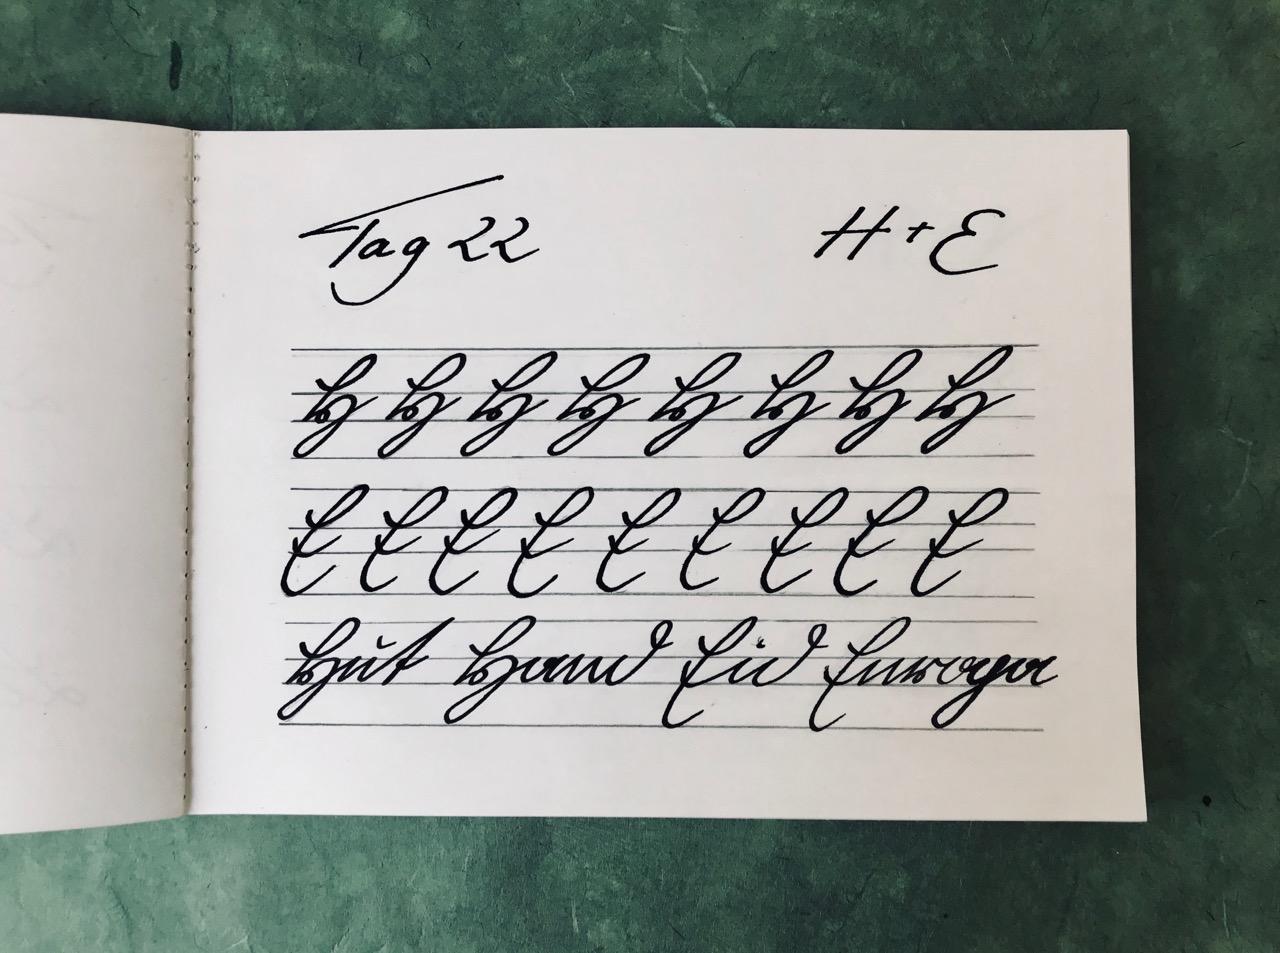 Tag 22 H + E
H H H H H H H H
E E E E E E E E E
Hut Hand Eid Europa